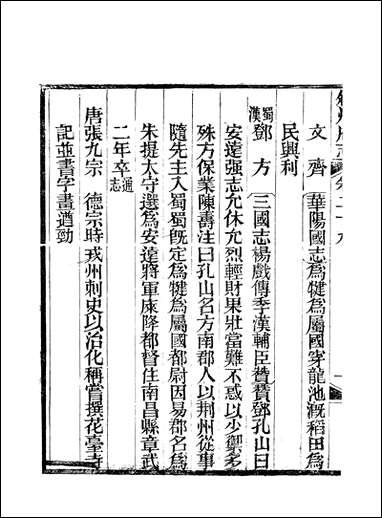 文齊 華陽國志爲犍爲屬國穿龍池溉稻田爲
民興利
蜀漢鄧方 三國志楊戲傳季漢輔臣贊贊鄧孔山曰
安遠强志允休允烈輕財果壯當難不惑以少禦多
殊方保業陳壽注曰孔山名方南郡人以荆州從事
隨先主入蜀蜀既定爲犍爲屬國都尉因易郡名爲
朱提太守選爲安遠將軍庲降都督住南昌縣章武
二年卒通志
唐張九宗 德宗時戎州刺史以治化稱嘗撰花臺寺
記並書字畫遒勁